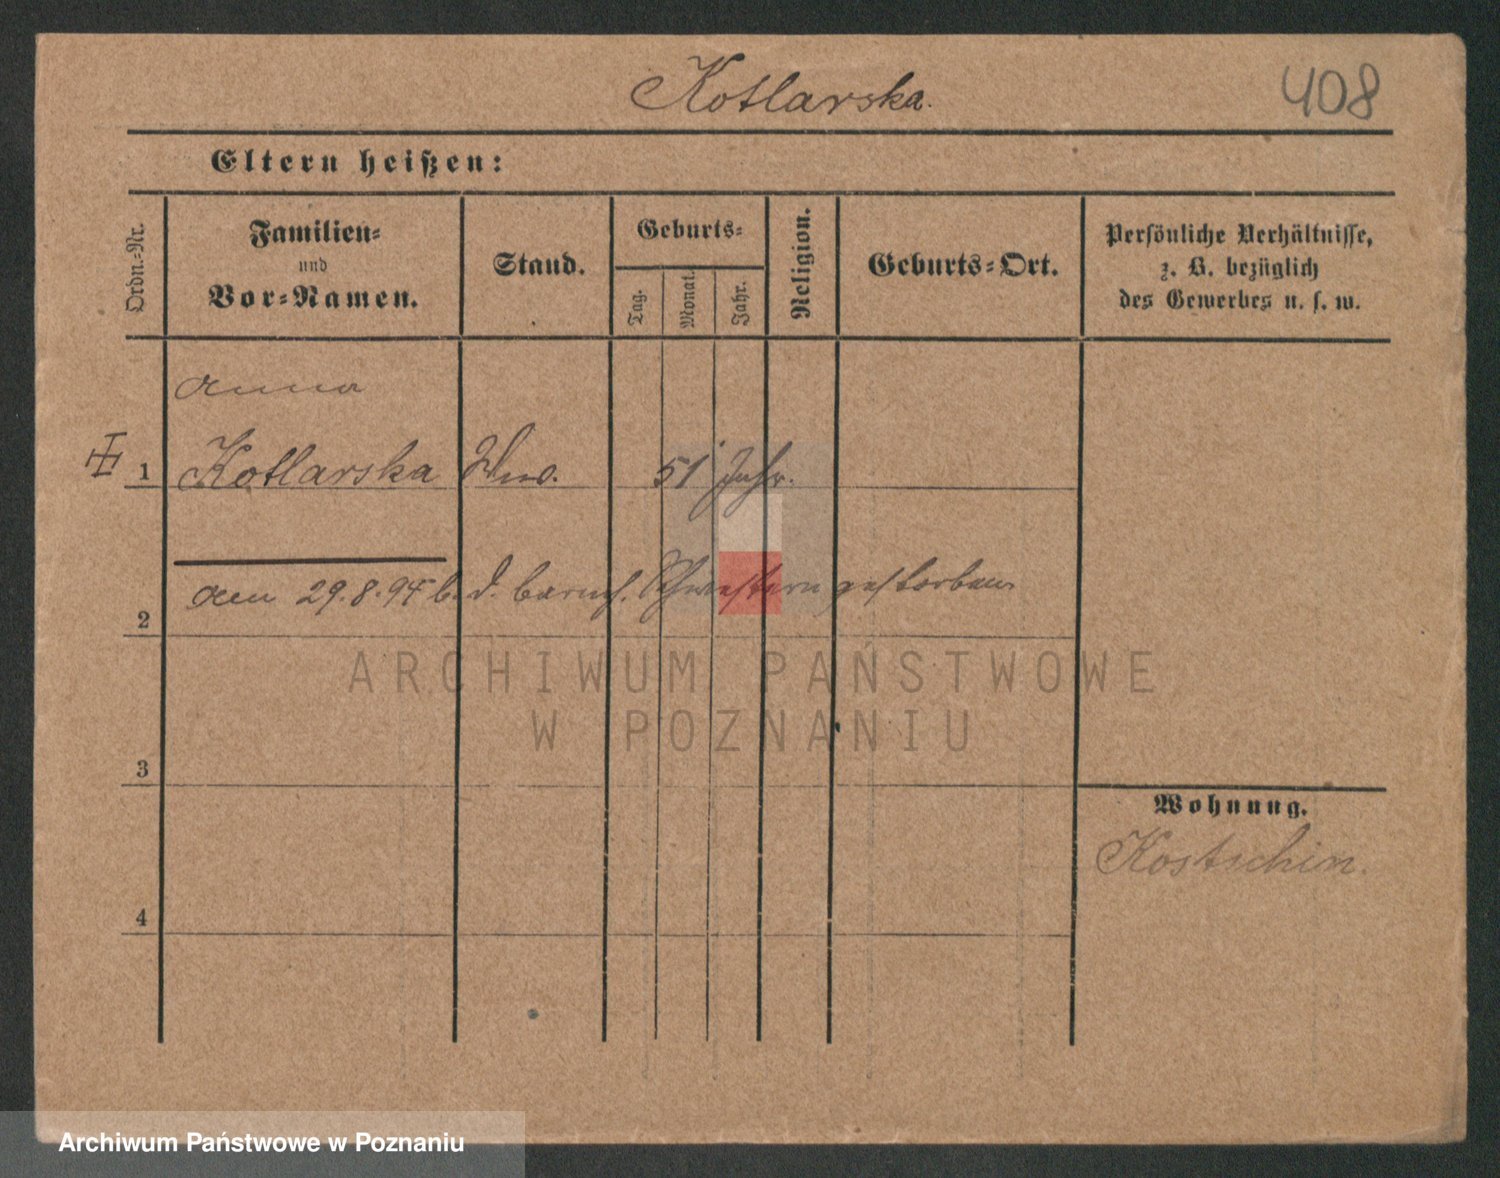 Kotlarska.
408
Eltern heißen:
Ordn.-Nr.
Familien-
und
Vor-Namen.
Stand.
Geburts-
Tag.
Monat.
Jahr.
Religion.
Geburts-Ort.
Persönliche Verhältnisse,
z. B. bezüglich
des Gewerbes u. s. w.
Anna
1 Kotlarska Ww. 51 Jahr.
am 29.8.94 b. d. barmh. Schwestern gestorben
2
3
4
Wohnung.
Kostschin.
ARCHIWUM PAŃSTWOWE
W POZNANIU
Archiwum Państwowe w Poznaniu